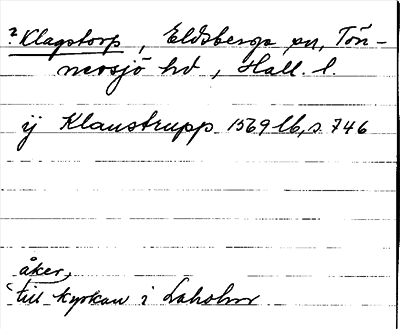 ? Klagstorp, Eldsberga sn, Tön-
nersjö hd, Hall. l.
ij Klaustrupp 1569 lb, s. 746
åker,
till kyrkan i Laholm